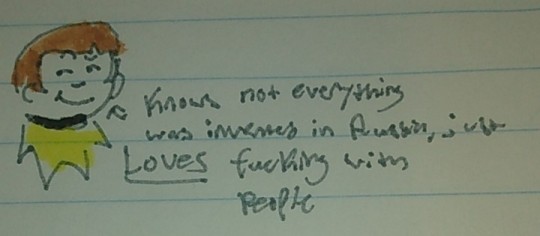 ~ Knows not everything
was invented in Russia, just
LOVES fucking with
people